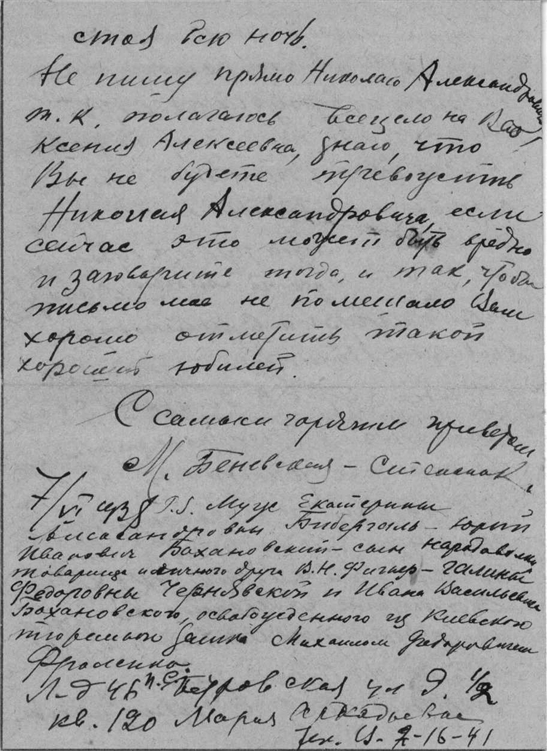 стоя всю ночь.
Не пишу прямо Николаю Александровичу
т.к. полагаюсь всецело на Вас,
Ксения Алексеевна, знаю, что
Вы не будете тревожить
Николая Александровича, если
сейчас это может быть вредно
и заговорите тогда, и так, чтобы
письмо мое не помешало Вам
хорошо отметить такой
хороший юбилей.
С самым горячим приветом
М. Беневская – Степанок.
7/VI 1938 P.S. Муж Екатерины
Александровны Бибергаль – Юрий
Иванович Бохановский – сын народовольц
товарища и личного друга В.Н. Фигнер – Галины
Федоровны Чернявской и Ивана Васильевича
Бохановского, освобожденного из Киевского
тюремного замка Михаилом Федоровичем
Фроленко.
Л-д 46 п.с. Петровская ул д. 1/2
кв. 120 Мария Аркадьевна
тел. 2-16-41